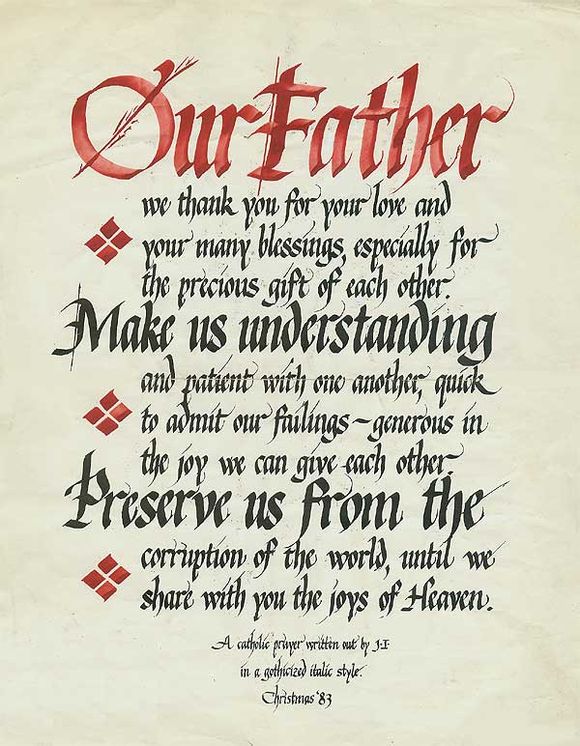 Our Father
we thank you for your love and
your many blessings, especially for
the precious gift of each other.
Make us understanding
and patient with one another, quick
to admit our failings ~ generous in
the joy we can give each other.
Preserve us from the
corruption of the world, until we
share with you the joys of Heaven.
A catholic prayer written out by J·I·
in a gothicized italic style.
Christmas '83